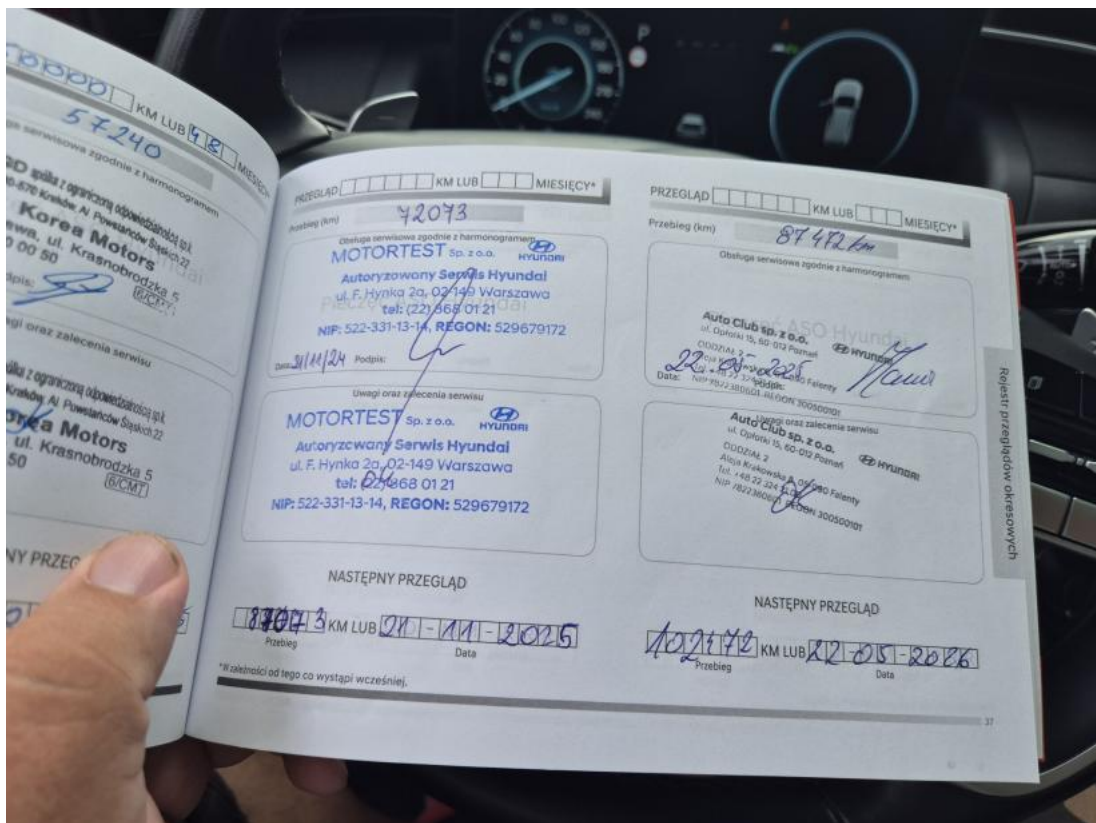 0000 KM LUB 48 MIESIĘCY*
57240
serwisowa zgodnie z harmonogramem
spółka z ograniczoną odpowiedzialnością sp.k.
Kraków, Al. Powstańców Śląskich 22
Korea Motors
ul. Krasnobrodzka 5
00 50
6/CMT
oraz zalecenia serwisu
z ograniczoną odpowiedzialnością sp.k.
Kraków, Al. Powstańców Śląskich 22
Motors
ul. Krasnobrodzka 5
50
6/CMT
PRZEGLĄD KM LUB MIESIĘCY*
Przebieg (km) 72073
Obsługa serwisowa zgodnie z harmonogramem
MOTORTEST Sp. z o.o. HYUNDAI
Autoryzowany Serwis Hyundai
ul. F. Hynka 2a, 02-149 Warszawa
tel: (22) 868 01 21
NIP: 522-331-13-14, REGON: 529679172
Data: 21/11/24 Podpis:
Uwagi oraz zalecenia serwisu
MOTORTEST Sp. z o.o. HYUNDAI
Autoryzowany Serwis Hyundai
ul. F. Hynka 2a, 02-149 Warszawa
tel: (22) 868 01 21
NIP: 522-331-13-14, REGON: 529679172
NASTĘPNY PRZEGLĄD
87073 KM LUB 21-11-2025
Przebieg Data
*W zależności od tego co wystąpi wcześniej.
PRZEGLĄD KM LUB MIESIĘCY*
Przebieg (km) 87472 km
Obsługa serwisowa zgodnie z harmonogramem
ASO Hyundai
Auto Club sp. z o.o. HYUNDAI
ul. Opłotki 15, 60-012 Poznań
ODDZIAŁ 2
Falenty
22-05-2025
Data: NIP 7822380601 REGON 300500101
Uwagi oraz zalecenia serwisu
Auto Club sp. z o.o. HYUNDAI
ul. Opłotki 15, 60-012 Poznań
ODDZIAŁ 2
Aleja Krakowska Falenty
tel. +48 22 324
NIP 7822380601 REGON 300500101
NASTĘPNY PRZEGLĄD
102472 KM LUB 22-05-2026
Przebieg Data
37
Rejestr przeglądów okresowych
P